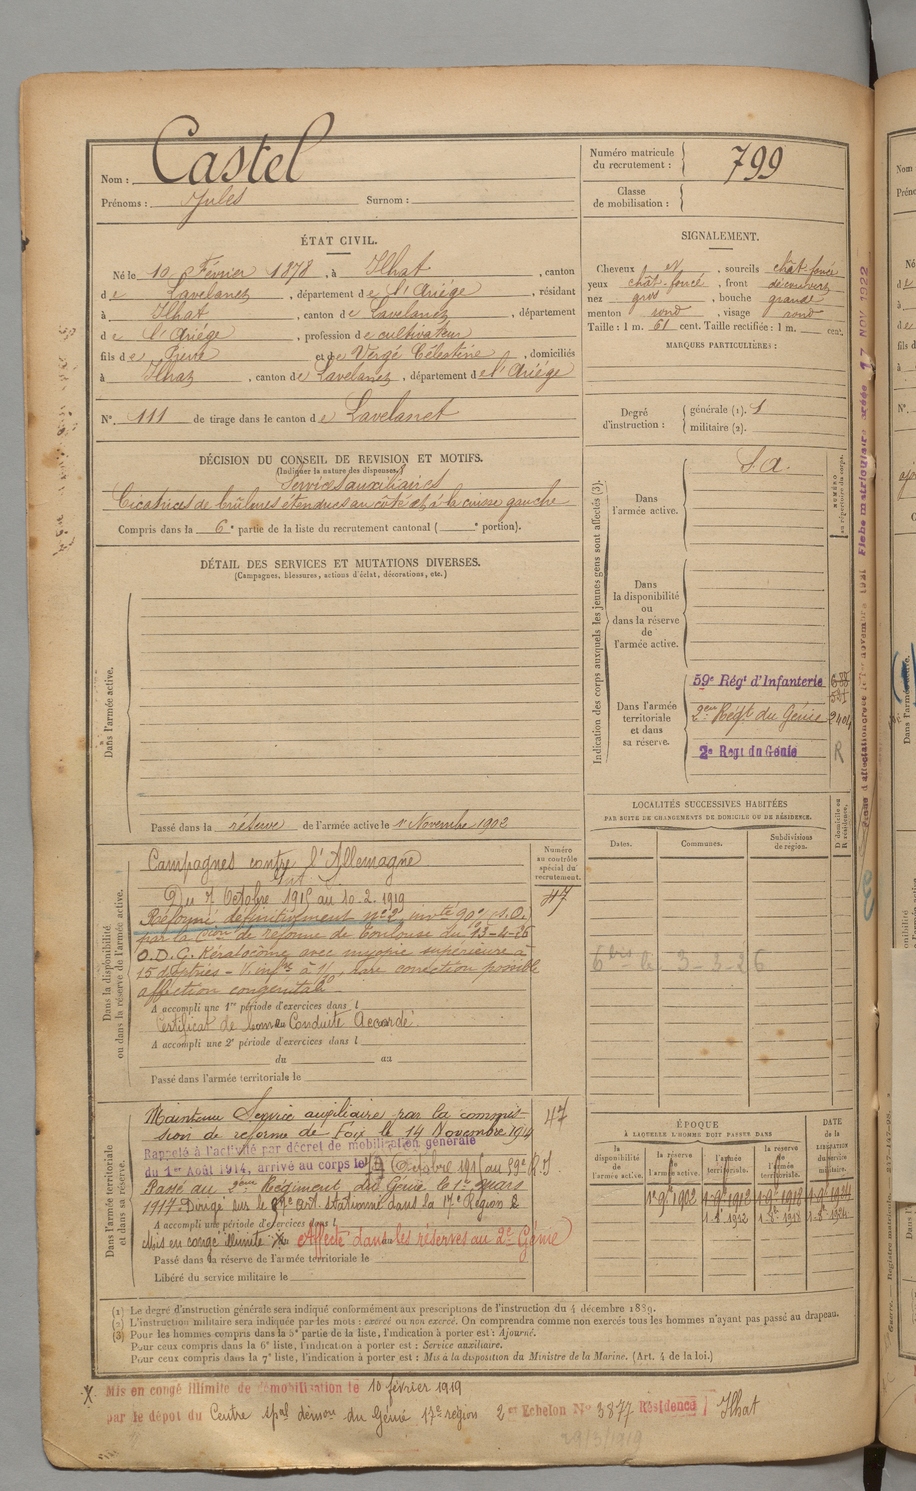 Nom : Castel
Prénoms : Jules Surnom :
Numéro matricule du recrutement : 799
Classe de mobilisation :
ÉTAT CIVIL.
Né le 10 Février 1878, à Ilhat, canton
de Lavelanet, département de l'Ariége, résidant
à Ilhat, canton de Lavelanet, département
de l'Ariége, profession de cultivateur
fils de Pierre et de Vergé Célestine, domiciliés
à Ilhat, canton de Lavelanet, département de l'Ariége
N° 111 de tirage dans le canton de Lavelanet
SIGNALEMENT.
Cheveux et, sourcils chât-foncé
yeux chât-foncé, front découvert
nez gros, bouche grande
menton rond, visage rond
Taille : 1 m. 61 cent. Taille rectifiée : 1 m. cent.
MARQUES PARTICULIÈRES :
Degré d'instruction : générale (1). 1
militaire (2).
DÉCISION DU CONSEIL DE REVISION ET MOTIFS.
(Indiquer la nature des dispenses.)
Services auxiliaires
Cicatrices de brûlures étendues au côté et à la cuisse gauche
Compris dans la 6e partie de la liste du recrutement cantonal ( e portion).
DÉTAIL DES SERVICES ET MUTATIONS DIVERSES.
(Campagnes, blessures, actions d'éclat, décorations, etc.)
Dans l'armée active.
Passé dans la réserve de l'armée active le 1er Novembre 1902
Indication des corps auxquels les jeunes gens sont affectés (3).
NUMÉRO au répertoire du corps.
Dans l'armée active.
S.A.
Dans la disponibilité ou dans la réserve de l'armée active.
Dans l'armée territoriale et dans sa réserve.
59e Régt d'Infanterie
2eme Régt du Génie 2404
2e Regt du Génie R
LOCALITÉS SUCCESSIVES HABITÉES
PAR SUITE DE CHANGEMENTS DE DOMICILE OU DE RÉSIDENCE.
Dates. Communes. Subdivisions de région.
D domicile ou R résidence.
3-3-26
Dans la disponibilité ou dans la réserve de l'armée active.
Numéro au contrôle spécial du recrutement.
47
Campagnes contre l'Allemagne
Int.
Du 7 Octobre 1915 au 10.2.1919
Réformé définitivement n° 2 invté 90% (S.O.)
par la Cion de réforme de Toulouse du 23-4-26
O.D.G. Kératocône avec myopie supérieure à
15 dioptries - V infre à 1/ sans correction possible
affection congenitale
A accompli une 1re période d'exercices dans l
Certificat de bonne Conduite Accordé.
A accompli une 2e période d'exercices dans l
du au
Passé dans l'armée territoriale le
Dans l'armée territoriale et dans sa réserve.
47
Maintenu Service auxiliaire par la commis-
sion de réforme de Foix le 14 Novembre 1914
Rappelé à l'activité par décret de mobilisation générale
du 1er Août 1914, arrivé au corps le 7 Octobre 1915 au 59e R.I.
Passé au 2eme Régiment du Génie le 1er Mars
1917. Dirigé sur le stationné dans la 17e Région le
A accompli une période d'exercices dans l
Mis en congé illimité X Affecté dans les réserves au 2e Génie
Passé dans la réserve de l'armée territoriale le
Libéré du service militaire le
ÉPOQUE
À LAQUELLE L'HOMME DOIT PASSER DANS
la disponibilité de l'armée active. la réserve de l'armée active. l'armée territoriale. la réserve de l'armée territoriale. DATE de la LIBÉRATION du service militaire.
1-9e 1902 1-9e 1912 1-9e 1918 1-9e 1924
(1) Le degré d'instruction générale sera indiqué conformément aux prescriptions de l'instruction du 4 décembre 1889.
(2) L'instruction militaire sera indiquée par les mots : exercé ou non exercé. On comprendra comme non exercés tous les hommes n'ayant pas passé au drapeau.
(3) Pour les hommes compris dans la 5e partie de la liste, l'indication à porter est : Ajourné.
Pour ceux compris dans la 6e liste, l'indication à porter est : Service auxiliaire.
Pour ceux compris dans la 7e liste, l'indication à porter est : Mis à la disposition du Ministre de la Marine. (Art. 4 de la loi.)
X Mis en congé illimité de démobilisation le 10 février 1919
par le dépôt du Centre ipal démon du Génie 17e region 2e Echelon No 3877 Résidence Ilhat
29/3/1919